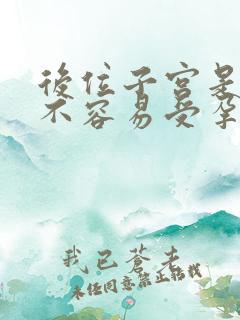 後位子宮是
不容易受孕
我已蒼老
未经同意禁止转载